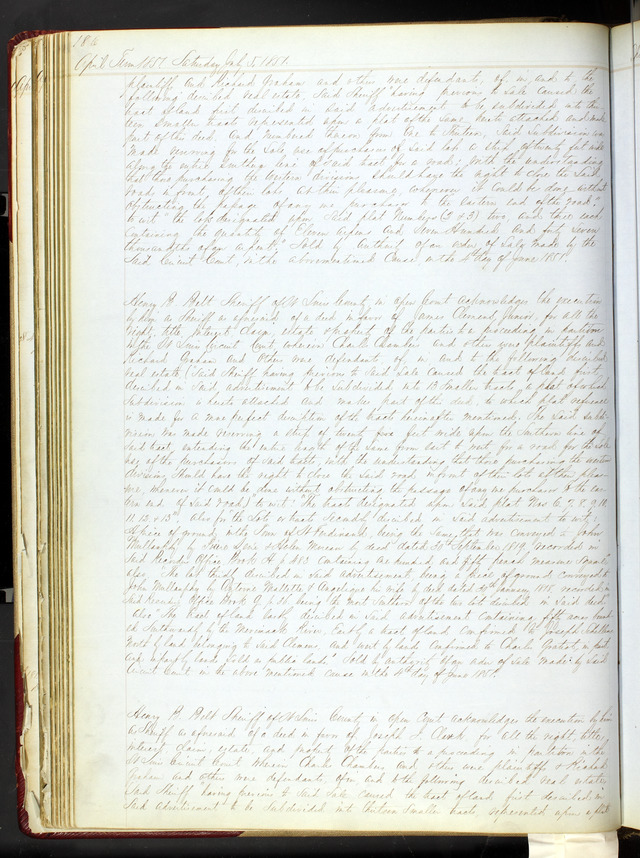 184
April Term 1851. Saturday July 5. 1851.
plaintiffs and Richard Graham and others were defendants, of, in, and to the
following described real estate, Said Sheriff having previous to Sale caused the
tract of land first described in said advertisement to be subdivided into thir
teen Smaller tracts represented upon a plat of the same, hereto attached and made
part of this deed, and numbered thereon from one to thirteen, Said Subdivision was
made reserving for the sole use of purchasers of Said lots a strip of twenty feet wide
along the entire Southern line of said tract for a road; with the understanding
that those purchasing the western divisions should have the right to close the said
road in front of their lots at their pleasure, whenever it could be done without
obstructing the passage of any one purchaser to the eastern end of the road,"
to wit "the lots designated upon said plat Numbers (2 & 3) two, and three each
containing the quantity of Eleven arpens and Seven Hundred and forty seven
thousandths of an arpent," Sold by authority of an order of Sale made by the
Said Circuit Court, in the abovementioned Cause, on the 4th day of June 1851.
Henry B Belt Sheriff of St Louis County, in open Court acknowledges the execution
by him as Sheriff as aforesaid of a deed in favor of James Clemens Junior, for all the
right, title, interest, claim, estate & property of the parties to a proceeding in partition
in the St Louis Circuit Court wherein Charles Chambers and others were plaintiffs and
Richard Graham and others were defendants of, in and to the following described
real estate (Said Sheriff having previous to said Sale caused the tract of land first
described in Said advertisement to be Subdivided into 13 smaller tracts, a plat of which
Subdivision is hereto attached and makes part of this deed, to which plat reference
is made for a more perfect description of the tracts hereinafter mentioned, The Said subdi-
vision was made reserving a strip of twenty four feet wide upon the Southern line of
said tract, extending the entire length of the same from East to West for a road for the sole
use of the purchasers of said lots, with the understanding that those purchasers in the western
divisions should have the right to close the said road in front of their lots at their pleas-
ure, whenever it could be done without obstructing the passage of any one purchaser to the eas-
tern end of said road) to wit: "The tracts designated upon said plat Nos 6, 7, 8, 9, 10,
11, 12, & 13". Also for the Lot or tract Secondly described in said advertisement to wit;
a piece of ground in the Town of St Ferdinand, being the same that was conveyed to John
Mullanphy by deed dated September 1819, recorded in
Said Recorders Office Book H p 483 containing one hundred and fifty french measure square"
also "the lot thirdly described in said advertisement, being a piece of ground conveyed to
John Mullanphy by Antoine Mallette & Angelique his wife by deed dated January 1818, recorded in
said Recorders Office Book being the most Southern of the two lots described in Said deed
Also "The tract of land fourth described in Said advertisement containing fifty acres bound-
ed Southwardly by the Merrimack River, East by a tract of land confirmed to Joseph
North by land belonging to Said Clemens, and West by land confirmed to Charles Gratiot, in part
and in part by land sold as public land." Sold by authority of an order of Sale made by Said
Circuit Court in the above mentioned cause on the 4th day of June 1851.
Henry B Belt Sheriff of St Louis County in open Court acknowledges the execution by him
as Sheriff as aforesaid of a deed in favor of Joseph J. Clark, for all the right, title,
interest, claim, estate, and property of the parties to a proceeding in partition in the
St Louis Circuit Court wherein Charles Chambers and others were plaintiffs & Richard
Graham and others were defendants of, in and to the following described real estate,
Said Sheriff having previous to said Sale caused the tract of land, first described in
Said advertisement to be subdivided into thirteen Smaller tracts, represented upon a plat